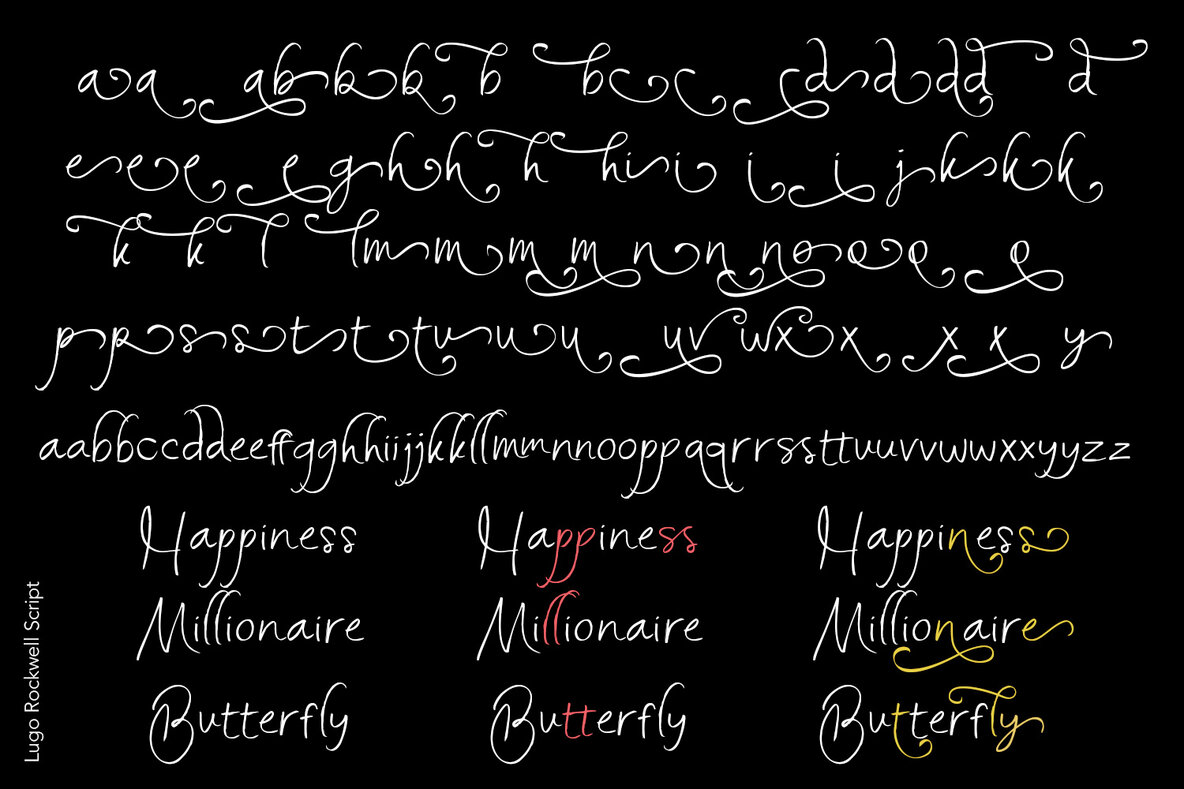 a a a b b b b b c c c d d d d d
e e e e g h h h h i i i i j k k k
k k l l m m m m n n n o o o o
p p s s t t t u u u u v w x x x x y
aabbccddeeffgghhiijjkkllmmnnooppaqrrssttuuvvwwxxyyzz
Happiness Happiness Happiness
Millionaire Millionaire Millionaire
Butterfly Butterfly Butterfly
Lugo Rockwell Script